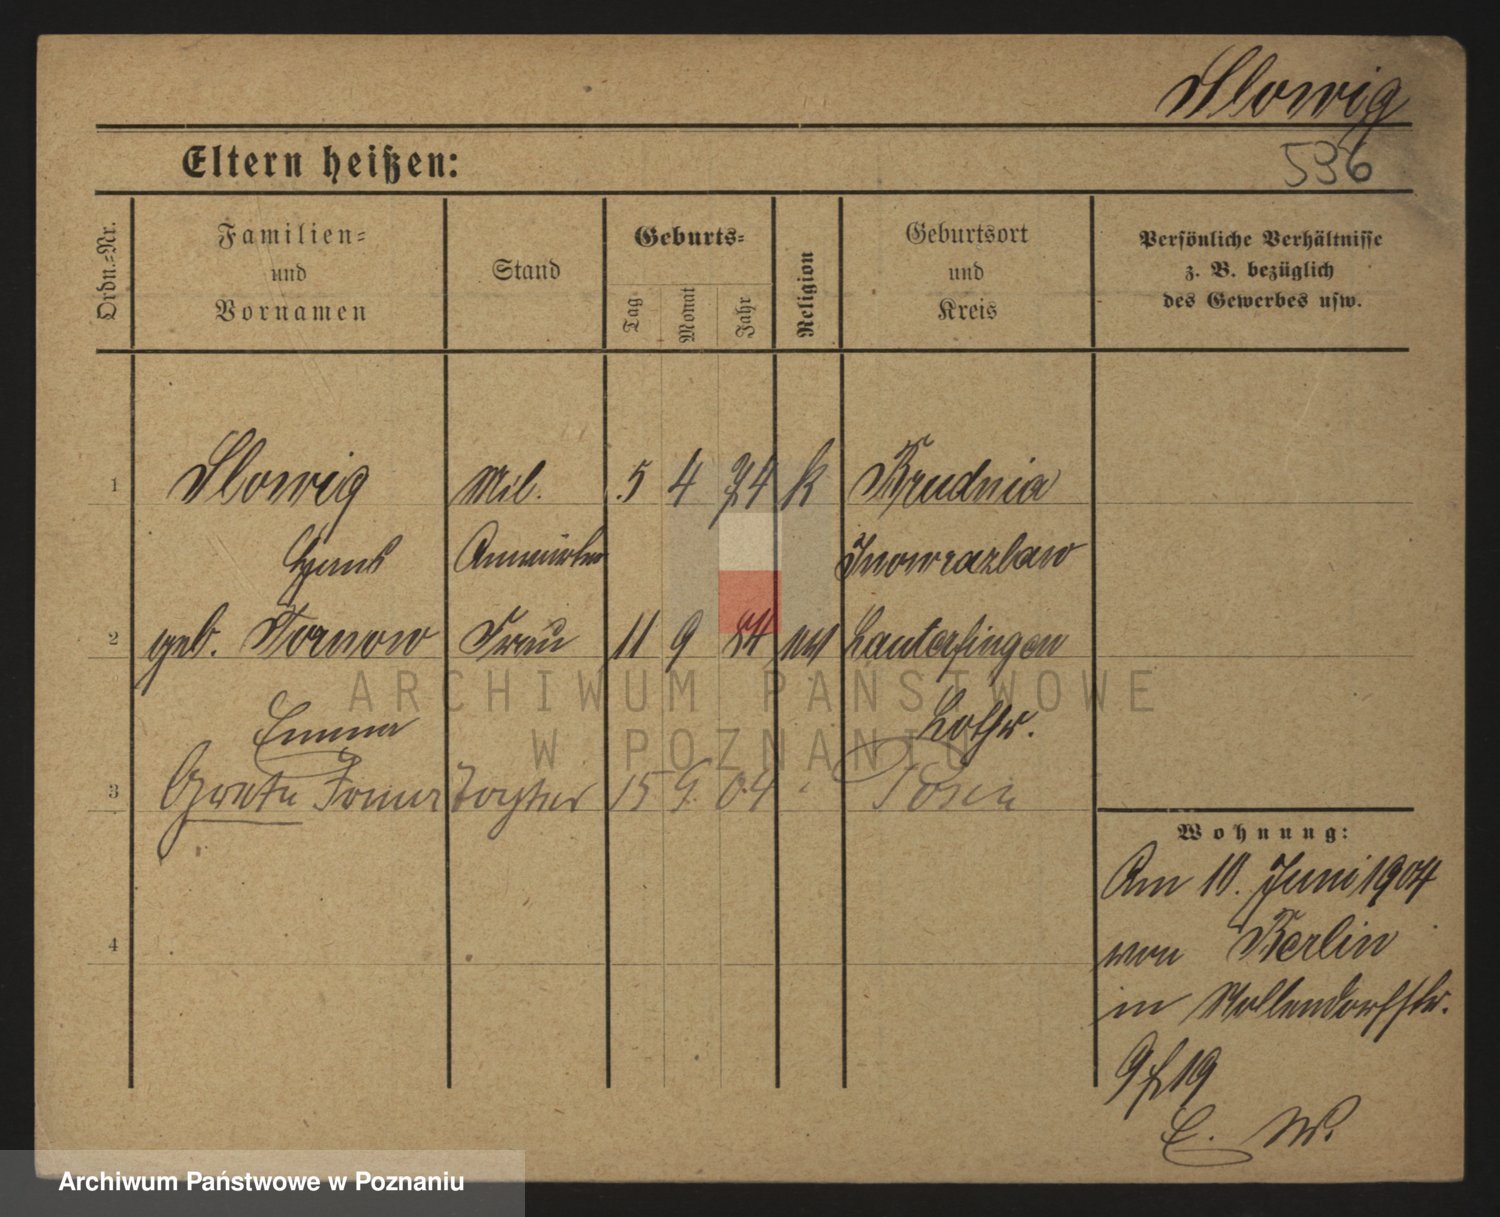 Slowig
536
Eltern heißen:
Ordn.-Nr.
Familien-
und
Vornamen
Stand
Geburts-
Tag
Monat
Jahr
Religion
Geburtsort
und
Kreis
Persönliche Verhältnisse
z. B. bezüglich
des Gewerbes usw.
1 Slowig Mil. 5 4 74 k Brudnia
Hans Anwärter Inowrazlaw
2 geb. Tornow Frau 11 9 84 Lauterfingen
Emma Lothr.
3 Tochter 15 9. 04 Posen
4
Wohnung:
Am 10. Juni 1904
von Berlin
in Mollendorfstr.
19
E. W.
ARCHIWUM PAŃSTWOWE
W POZNANIU
Archiwum Państwowe w Poznaniu